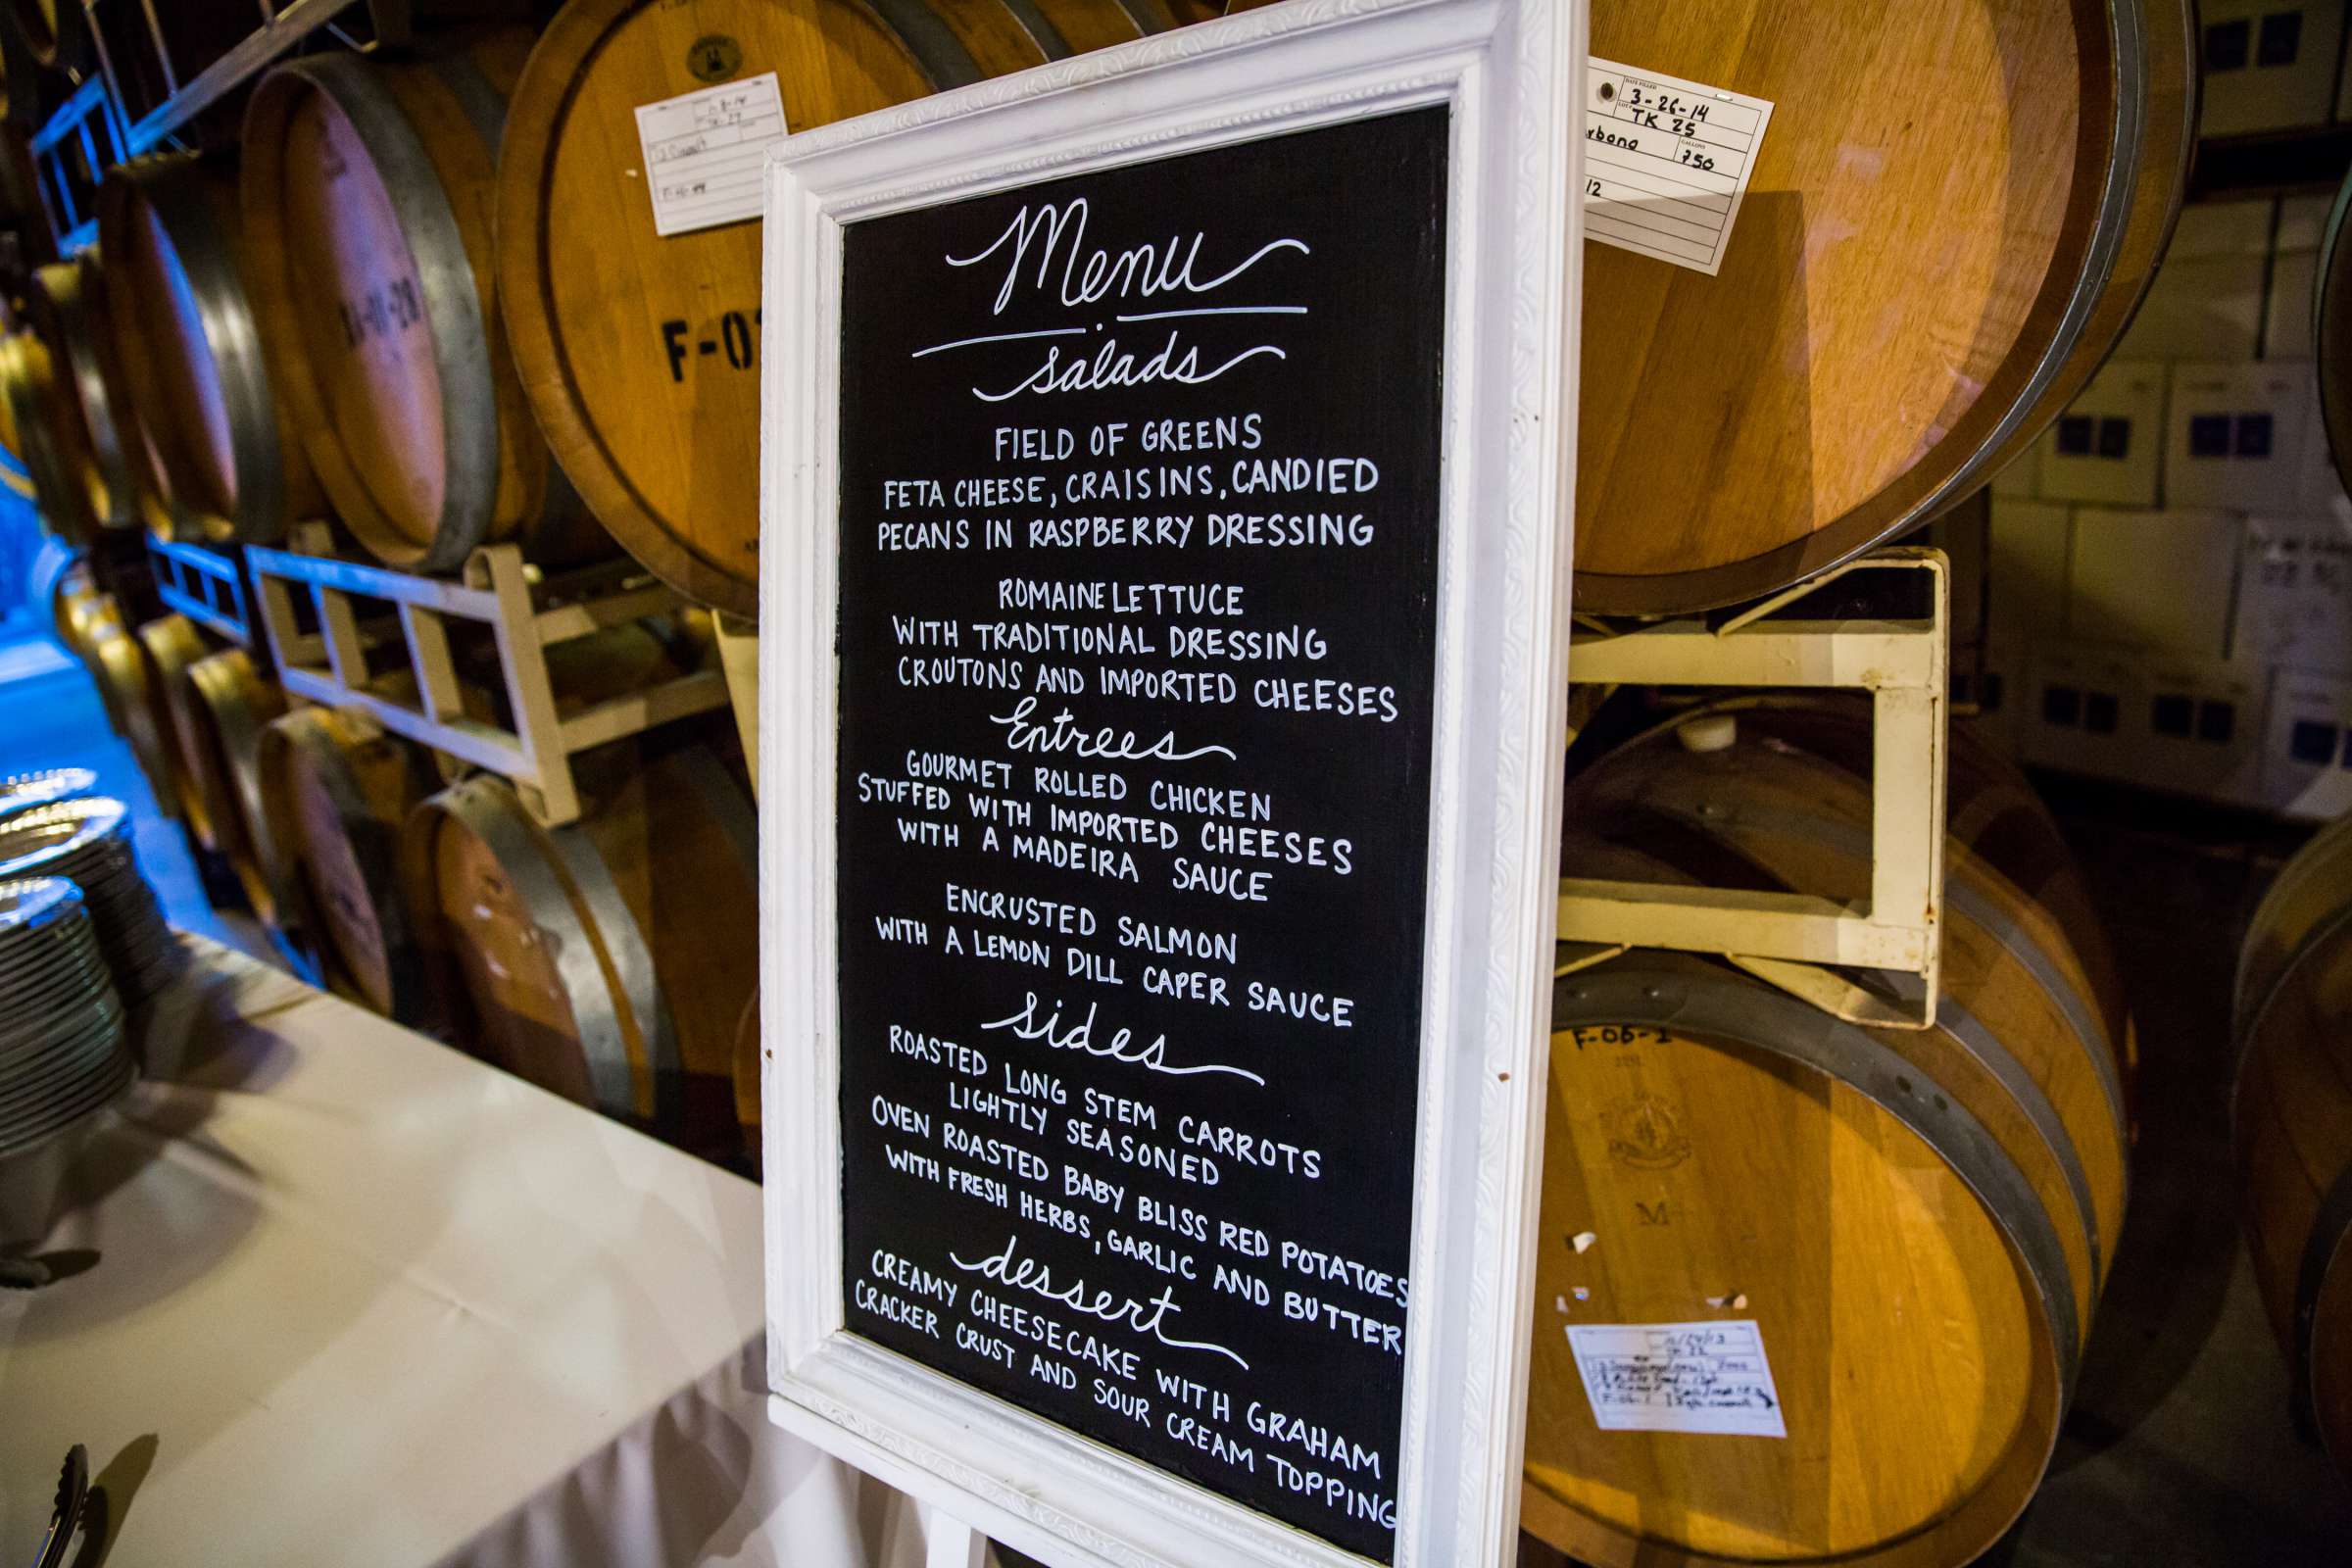 Menu
salads
FIELD OF GREENS
FETA CHEESE, CRAISINS, CANDIED
PECANS IN RASPBERRY DRESSING
ROMAINE LETTUCE
WITH TRADITIONAL DRESSING
CROUTONS AND IMPORTED CHEESES
Entrees
GOURMET ROLLED CHICKEN
STUFFED WITH IMPORTED CHEESES
WITH A MADEIRA SAUCE
ENCRUSTED SALMON
WITH A LEMON DILL CAPER SAUCE
sides
ROASTED LONG STEM CARROTS
LIGHTLY SEASONED
OVEN ROASTED BABY BLISS RED POTATOES
WITH FRESH HERBS, GARLIC AND BUTTER
dessert
CREAMY CHEESECAKE WITH GRAHAM
CRACKER CRUST AND SOUR CREAM TOPPING
F-0
DATE FILLED
3-26-14
TK 25
GALLONS
750
12
F-06-1
M